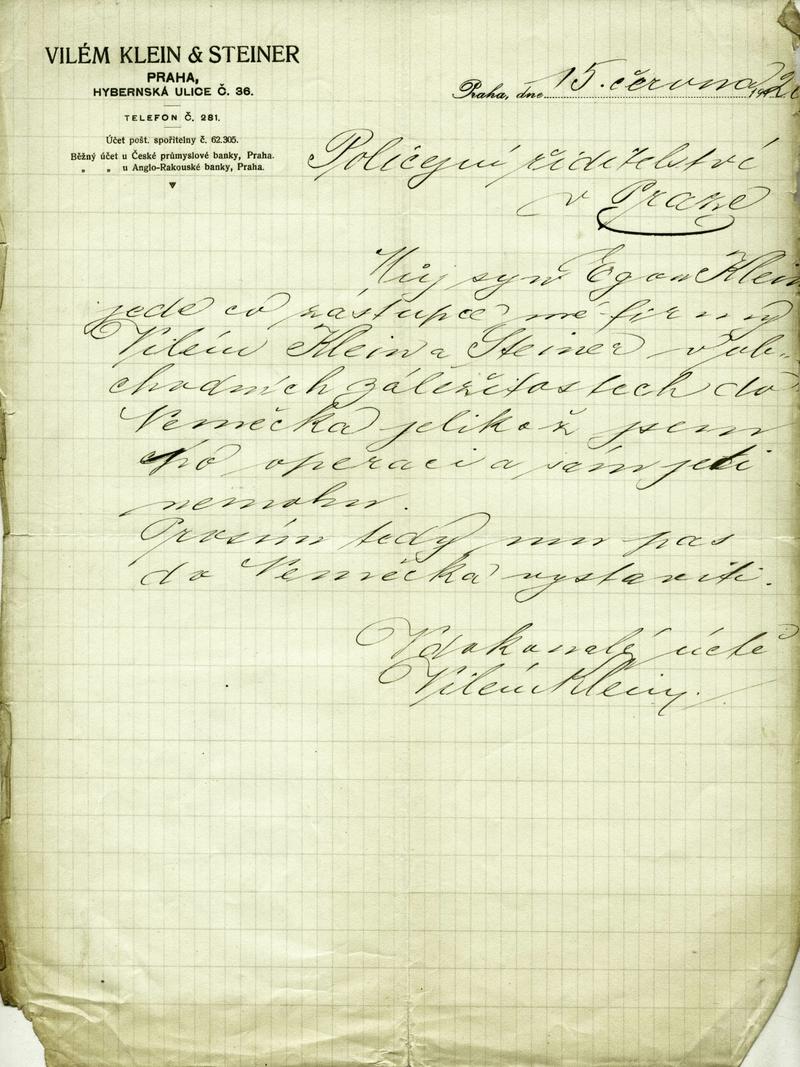 VILÉM KLEIN & STEINER
PRAHA,
HYBERNSKÁ ULICE Č. 36.
TELEFON Č. 281.
Účet pošt. spořitelny č. 62.305.
Běžný účet u České průmyslové banky, Praha.
„ „ u Anglo-Rakouské banky, Praha.
Praha, dne 15. června 192
Policejní ředitelství
v Praze
Můj syn Egon Klein
jede co zástupce mé firmy
Vilém Klein a Steiner v ob-
chodních záležitostech do
Německa jelikož jsem
po operaci a sám jeti
nemohu.
Prosím tedy mu pas
do Německa vystaviti.
V dokonalé úctě
Vilém Klein